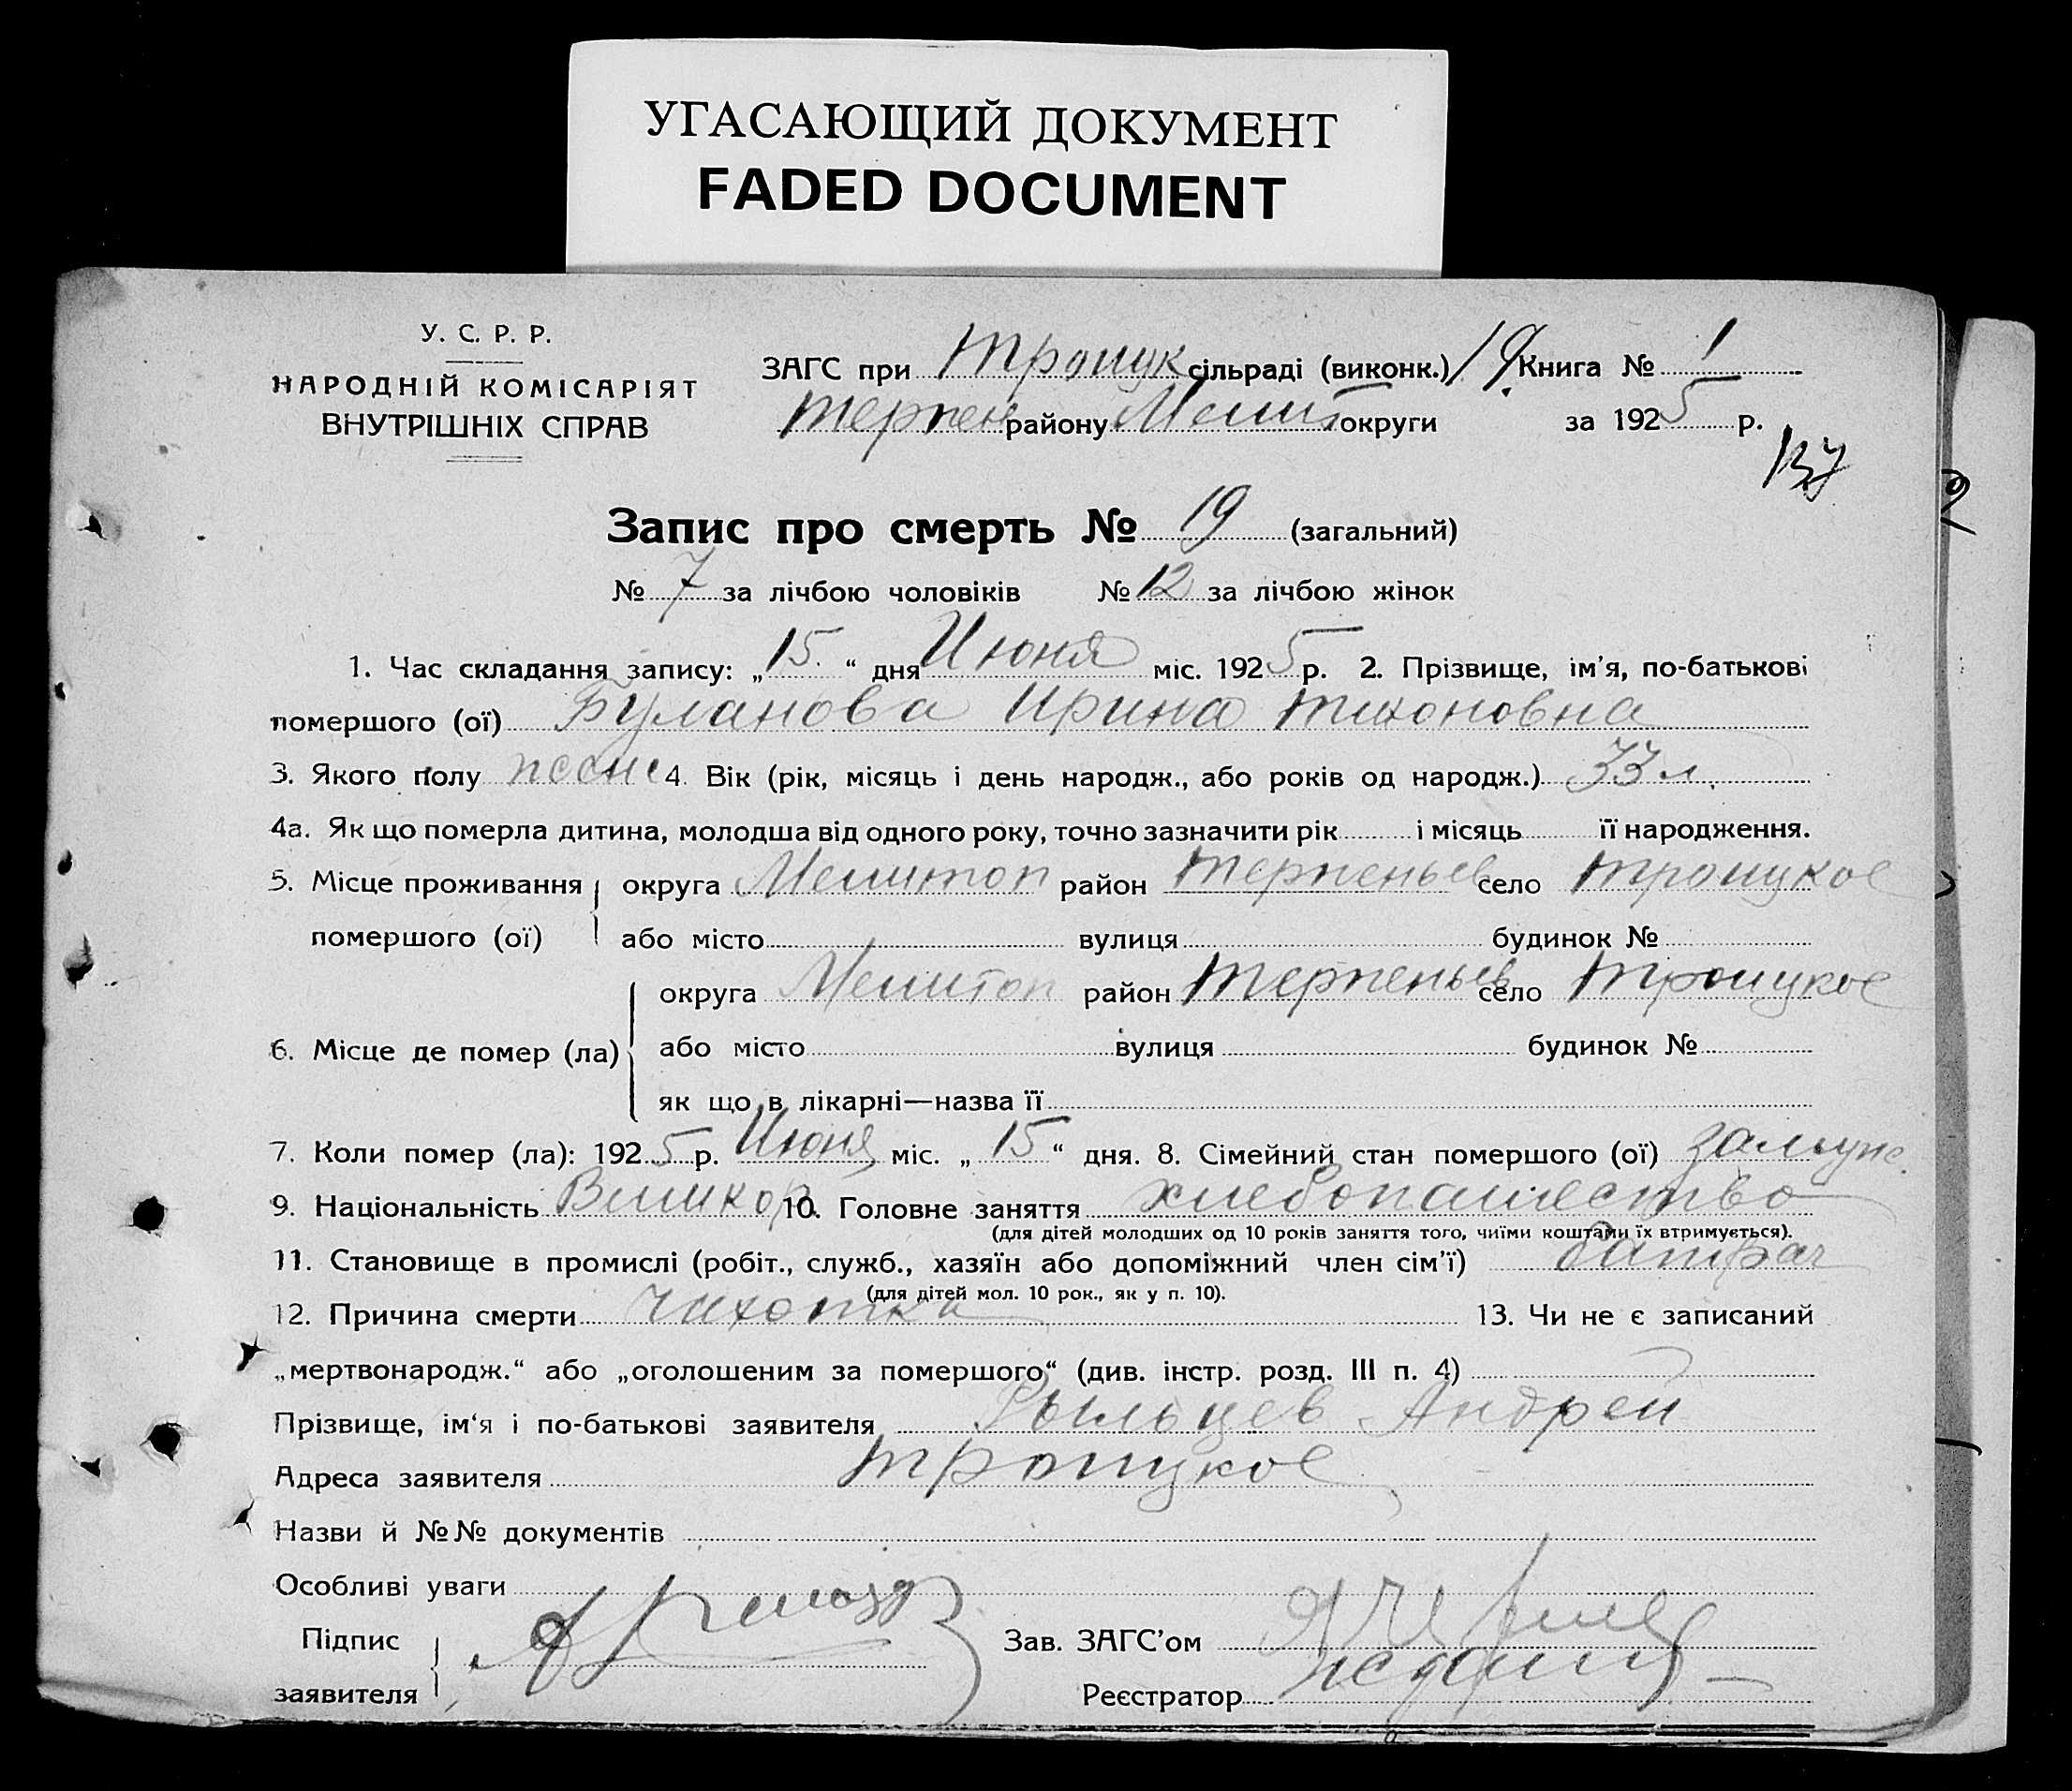 УГАСАЮЩИЙ ДОКУМЕНТ
FADED DOCUMENT
У. С. Р. Р.
НАРОДНІЙ КОМІСАРІЯТ
ВНУТРІШНІХ СПРАВ
ЗАГС при Троицк сільраді (виконк.) 19 Книга № 1
Терпен району Мелит округи за 1925 р.
137
Запис про смерть № 19 (загальний)
№ 7 за лічбою чоловіків № 12 за лічбою жінок
1. Час складання запису: „15“ дня Июня міс. 1925 р. 2. Прізвище, ім'я, по-батькові
помершого (ої) Буланова Ирина Тихоновна
3. Якого полу женс 4. Вік (рік, місяць і день народж., або років од народж.) 33 л.
4а. Як що померла дитина, молодша від одного року, точно зазначити рік і місяць її народження.
5. Місце проживання помершого (ої) округа Мелитоп район Терпеньев село Троицкое
або місто вулиця будинок №
6. Місце де помер (ла) округа Мелитоп район Терпеньев село Троицкое
або місто вулиця будинок №
як що в лікарні—назва її
7. Коли помер (ла): 1925 р. Июня міс. „15“ дня. 8. Сімейний стан помершого (ої) замуж.
9. Національність Великор 10. Головне заняття хлебопашество
(для дітей молодших од 10 років заняття того, чиїми коштами їх втримується).
11. Становище в промислі (робіт., служб., хазяїн або допоміжний член сім'ї) батрач
(для дітей мол. 10 рок., як у п. 10).
12. Причина смерти чихотка 13. Чи не є записаний
„мертвонародж.“ або „оголошеним за помершого“ (див. інстр. розд. III п. 4)
Прізвище, ім'я і по-батькові заявителя Рыльцев Андрей
Адреса заявителя Троицкое
Назви й №№ документів
Особливі уваги
Підпис заявителя
Зав. ЗАГС'ом
Реєстратор